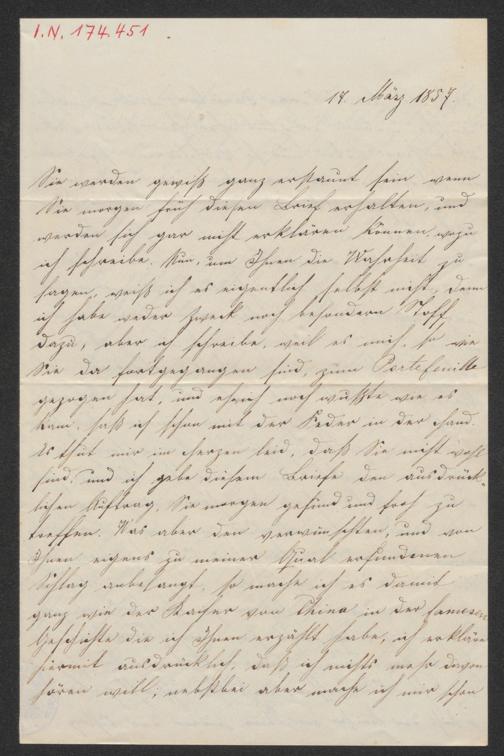 I.N. 174.451
17. März 1857.
Sie werden gewiß ganz erstaunt sein wenn
Sie morgen früh diesen Brief erhalten, und
werden sich gar nicht erklären können, wozu
ich schreibe. Nun, um Ihnen die Wahrheit zu
sagen, weiß ich es eigentlich selbst nicht, denn
ich habe weder Zweck noch besondern Stoff
dazu, aber ich schreibe, weil es mich, so wie
Sie da fortgegangen sind, zum Portefeuille
gezogen hat, und eh ich noch wußte wie es
kam, saß ich schon mit der Feder in der Hand.
Es thut mir im Herzen leid, daß Sie nicht wohl
sind, und ich gebe diesem Briefe den ausdrück-
lichen Auftrag, Sie morgen gesund und froh zu
treffen. Was aber den verwünschten, und von
Ihnen eigens zu meiner Qual erfundenen
Schlag anbelangt, so mache ich es damit
ganz wie der Kaiser von China in der famosen
Geschichte die ich Ihnen erzählt habe, ich erkläre
hiermit ausdrücklich, daß ich nichts mehr davon
hören will; nebstbei aber mache ich mir schon